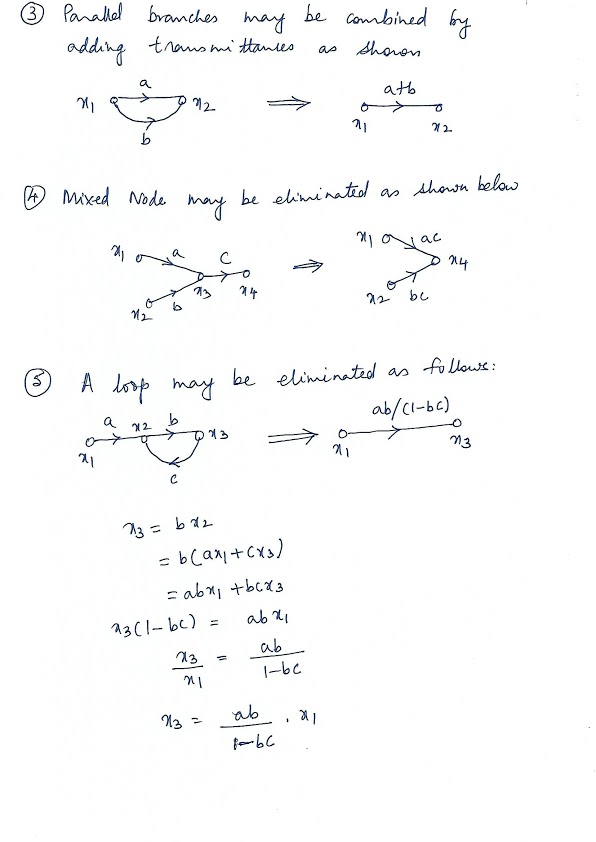 ③ Parallel branches may be combined by
adding transmittances as shown
a
x1 x2 ⟹ a+b
b
x1 x2
④ Mixed Node may be eliminated as shown below
x1 a c ⟹ x1 ac
x3 x4 x4
x2 b x2 bc
⑤ A loop may be eliminated as follows:
a x2 b x3 ⟹ ab/(1-bc)
x1 x1 x3
c
x3 = bx2
= b(ax1+cx3)
= abx1 +bcx3
x3(1-bc) = abx1
x3/x1 = ab/1-bc
x3 = ab/1-bc . x1